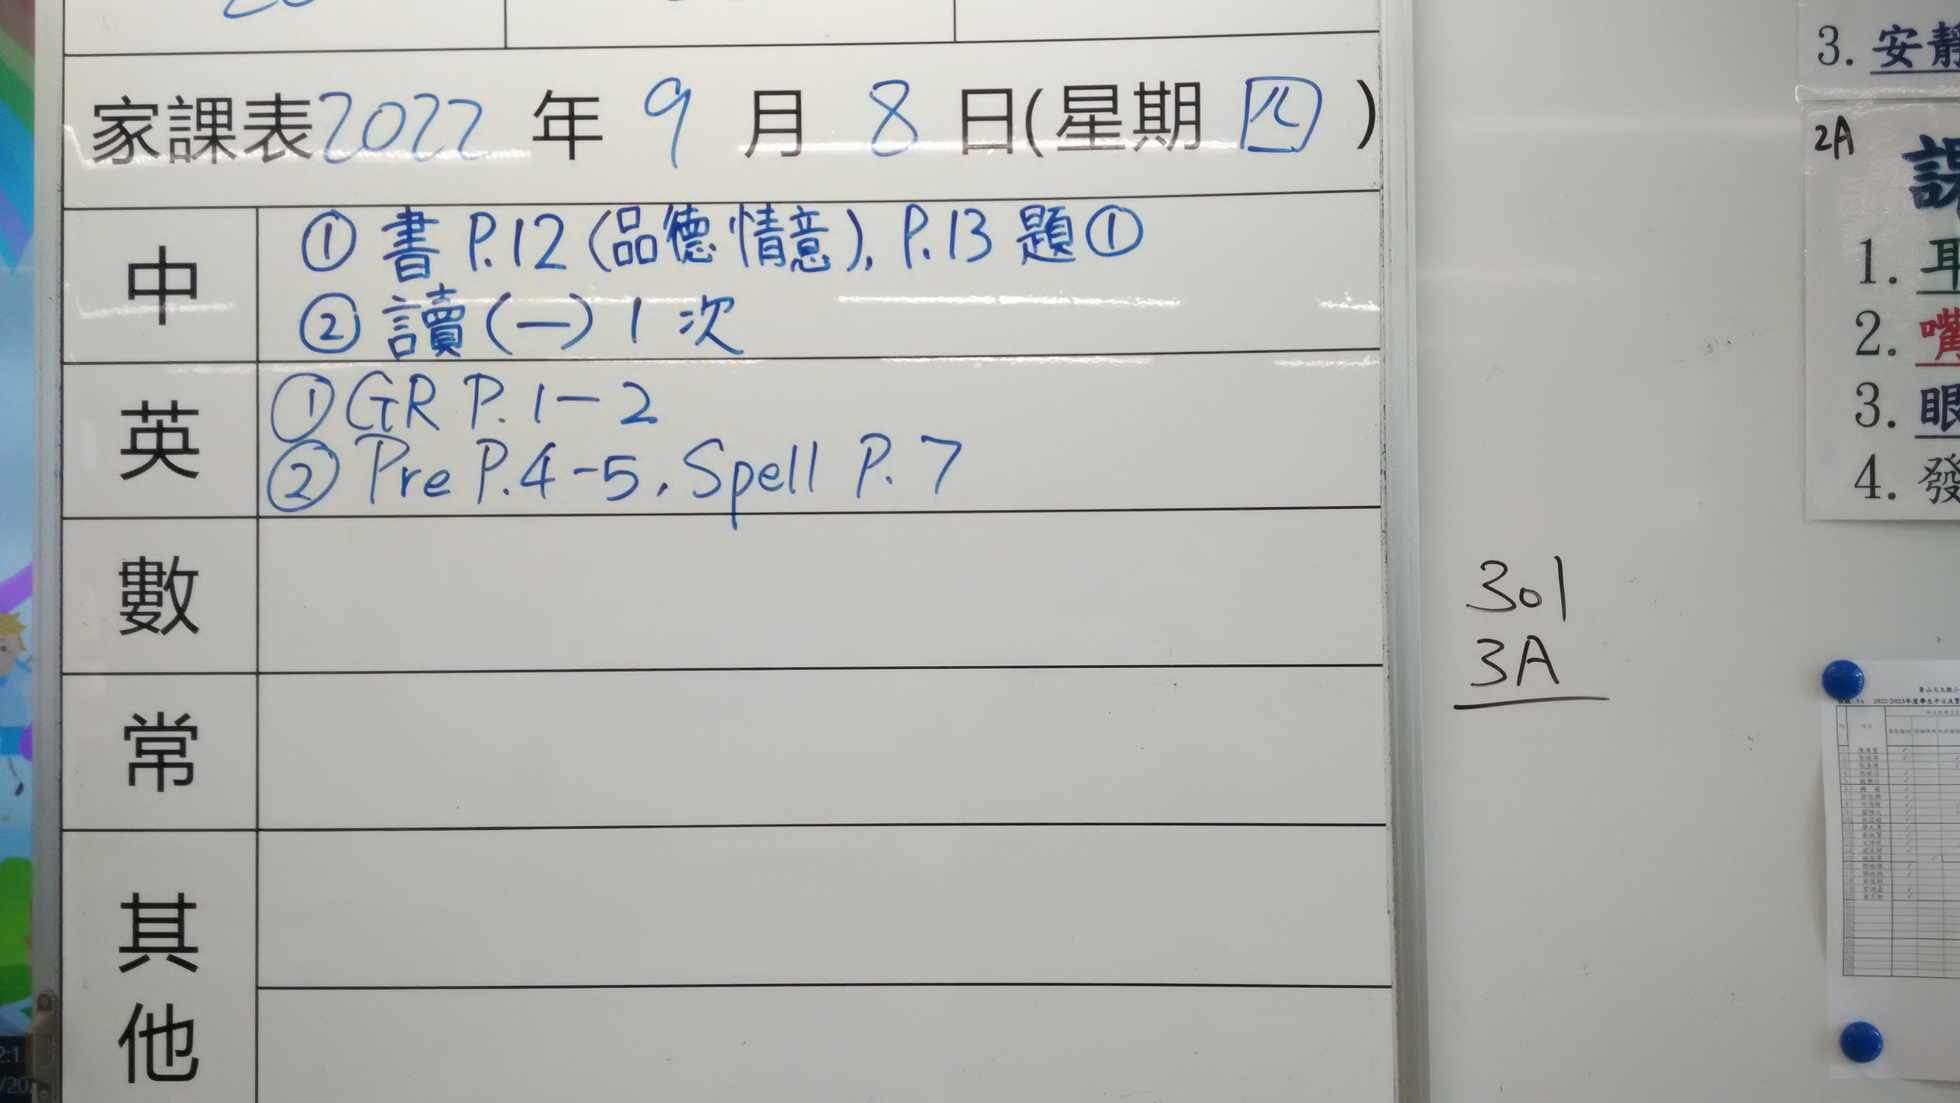 家課表2022年9月8日(星期四)
中
①書P.12(品德情意), P.13題①
②讀(一)1次
英
①GR P.1-2
②Pre P.4-5, Spell P.7
數
常
其他
301
3A
3. 安靜
2A
課
1. 耳
2. 嘴
3. 眼
4. 發